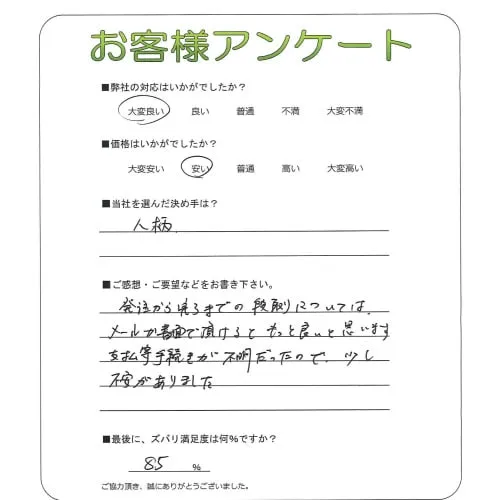 お客様アンケート
■弊社の対応はいかがでしたか？
大変良い 良い 普通 不満 大変不満
■価格はいかがでしたか？
大変安い 安い 普通 高い 大変高い
■当社を選んだ決め手は？
人柄.
■ご感想・ご要望などをお書き下さい。
発注から完了までの段取りについては、
メールか書面で頂けるともっと良いと思います
支払等手続きが不明だったので、少し
不安がありました
■最後に、ズバリ満足度は何%ですか？
85 %
ご協力頂き、誠にありがとうございました。